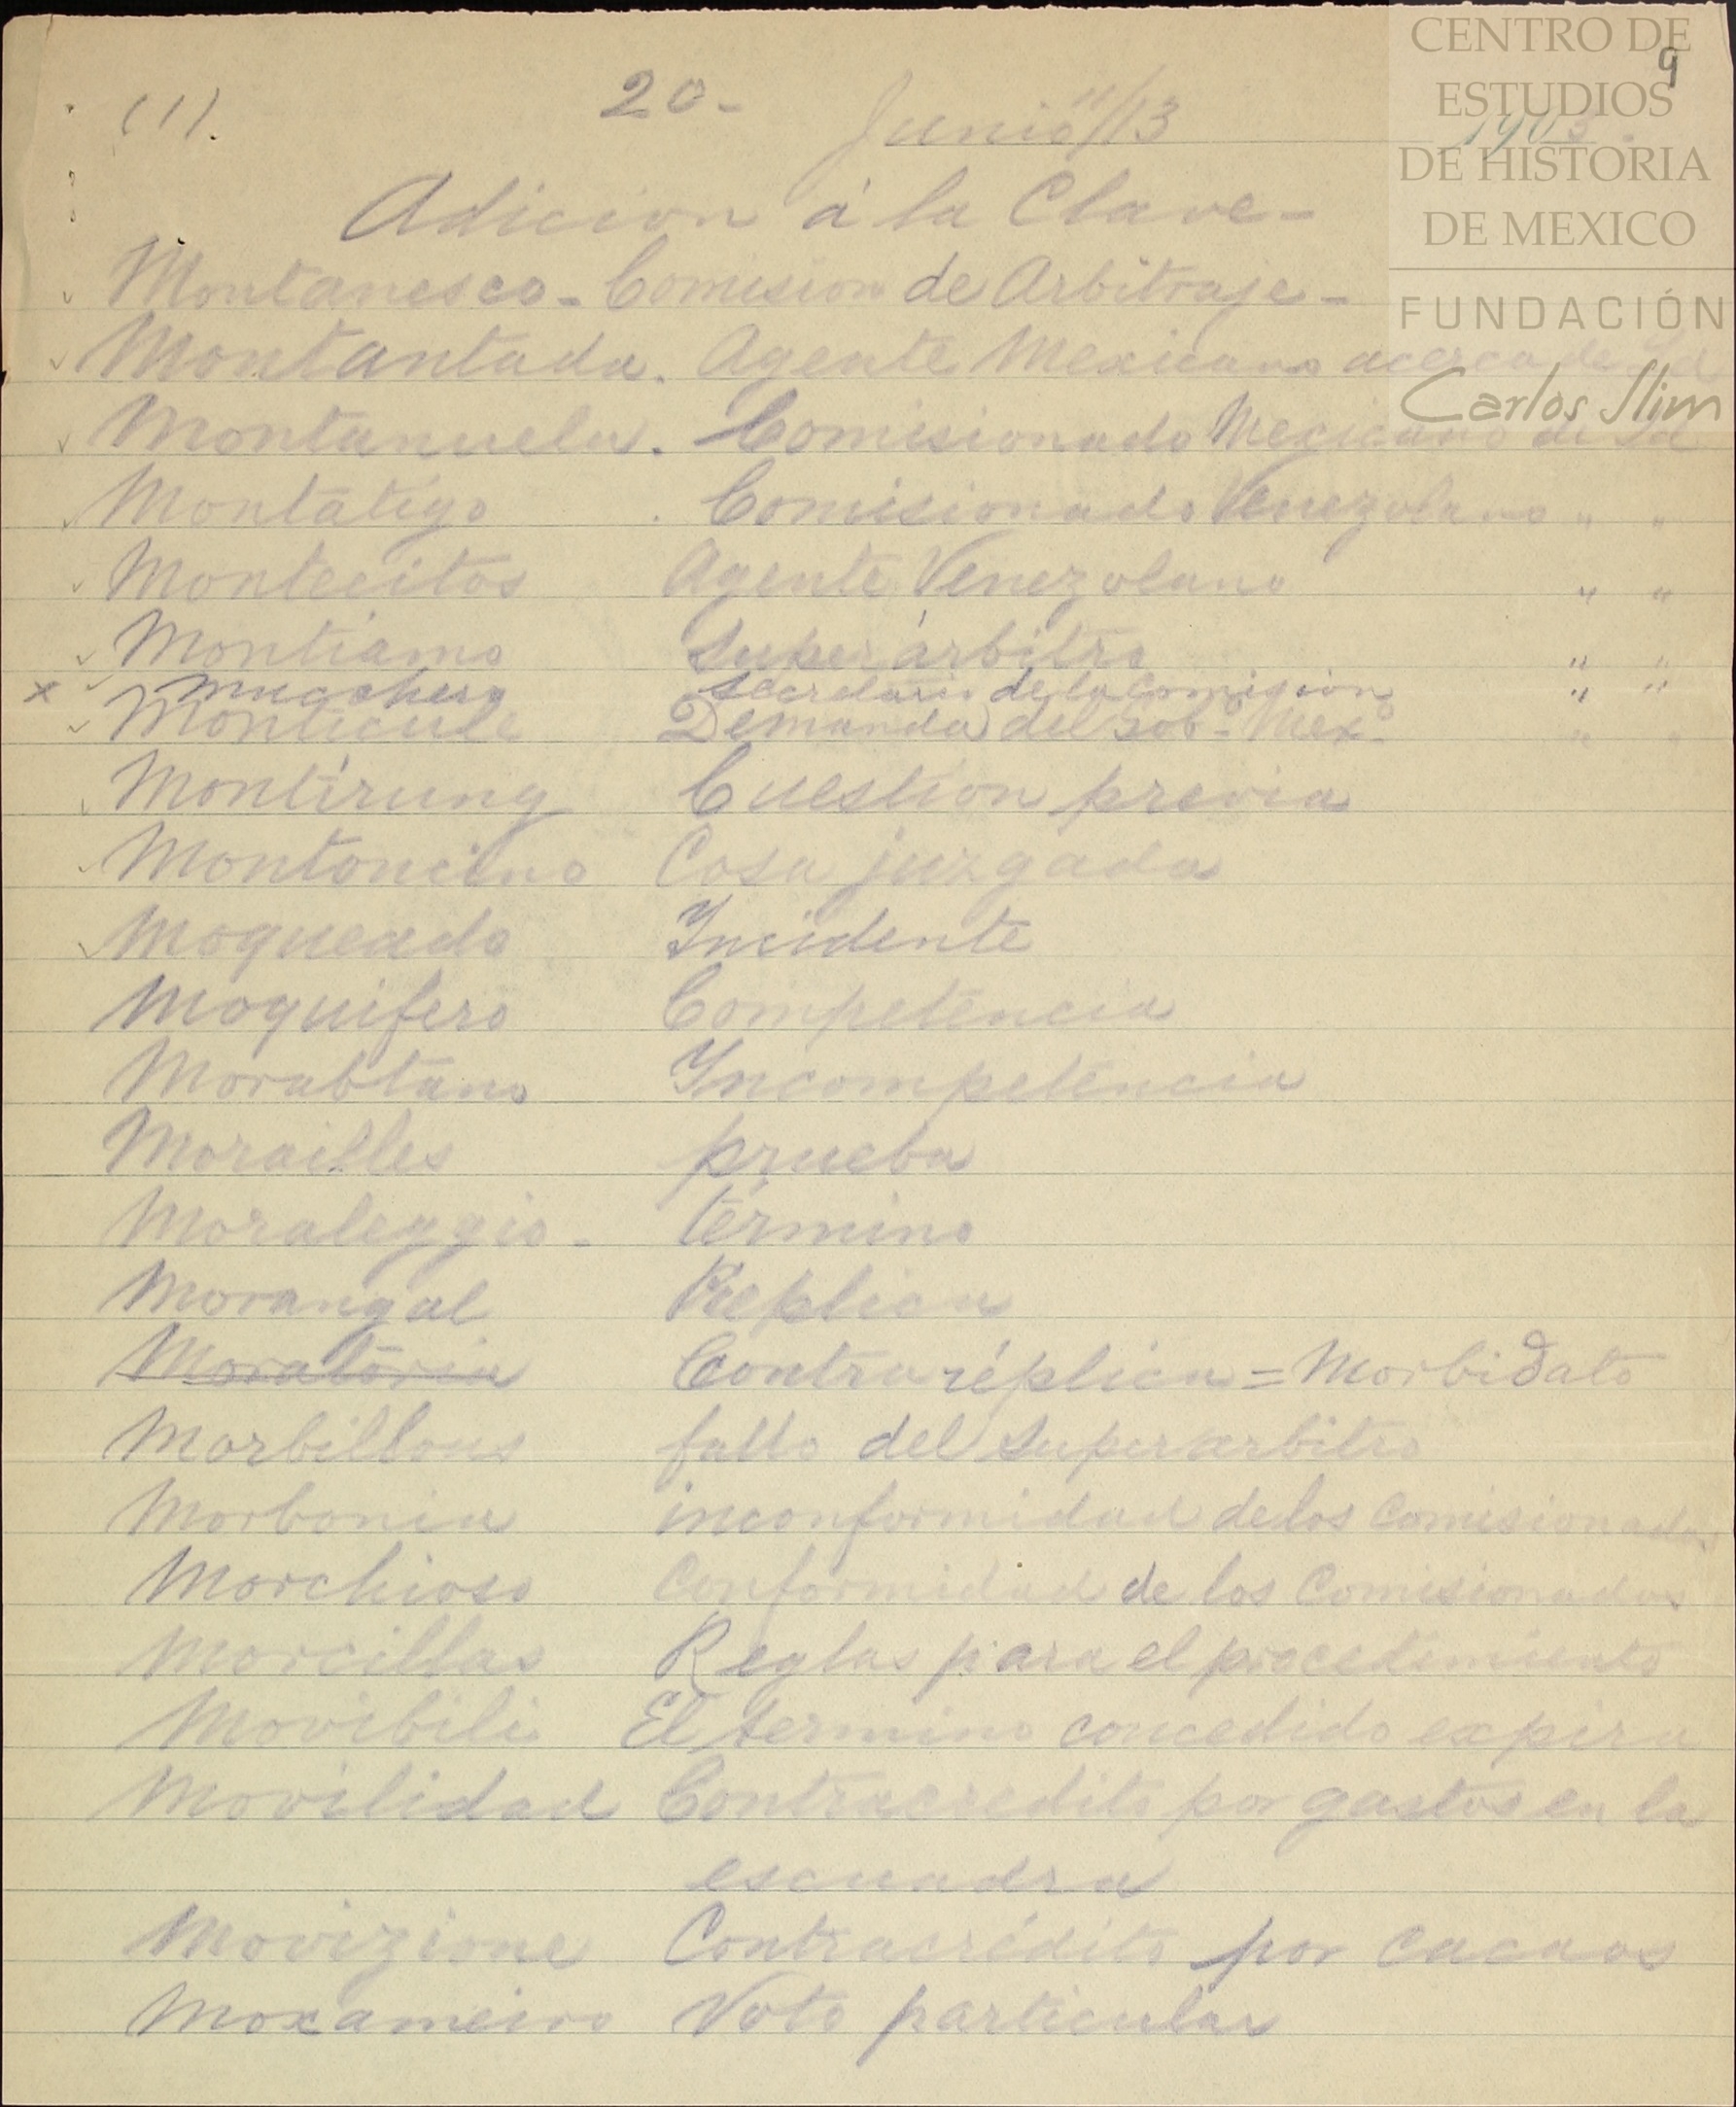 CENTRO DE
ESTUDIOS
DE HISTORIA
DE MEXICO
FUNDACIÓN
Carlos Slim
9
(1). 20- Junio 11/13 1903.
Adicion á la Clave-
Montanesco - Comision de Arbitraje -
Montantada. Agente Mexicano acerca de id
Montanuela. Comisionado Mexicano de id
Montatigo . Comisionado Venezolano " "
Montecitos Agente Venezolano " "
Montiamo Super árbitro " "
x Mucchero Secretario de la Comision " "
Monticule Demanda del Gob- Mexº " "
Montirung Cuestion previa
Montoncino Cosa juzgada
Moqueado Incidente
Moquifero Competencia
Morabtano Incompetencia
Morailles prueba
Moraleggio - término
Morangal Réplica
Moratoria Contraréplica = Morbidato
Morbillous fallo del Superarbitro
Morbonia inconformidad de los Comisionados
Morchioso Conformidad de los Comisionados
Morcillas Reglas para el procedimiento
Movibili El termino concedido expira
Movilidad Contracredito por gastos en la
escuadra
Movizione Contracrédito por cacaos
Moxameiro Voto particular